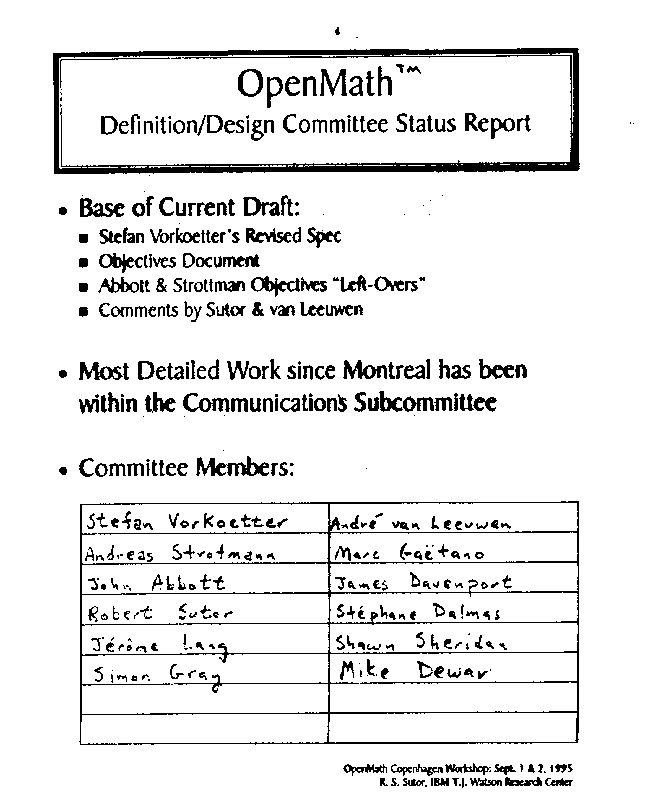 OpenMath™
Definition/Design Committee Status Report
• Base of Current Draft:
■ Stefan Vorkoetter's Revised Spec
■ Objectives Document
■ Abbott & Strottman Objectives "Left-Overs"
■ Comments by Sutor & van Leeuwen
• Most Detailed Work since Montreal has been
within the Communications Subcommittee
• Committee Members:
Stefan Vorkoetter André van Leeuwen
Andreas Strotmann Marc Gaëtano
John Abbott James Davenport
Robert Sutor Stéphane Dalmas
Jérôme Lang Shawn Sheridan
Simon Gray Mike Dewar
OpenMath Copenhagen Workshop: Sept. 1 & 2, 1995
R. S. Sutor, IBM T.J. Watson Research Center